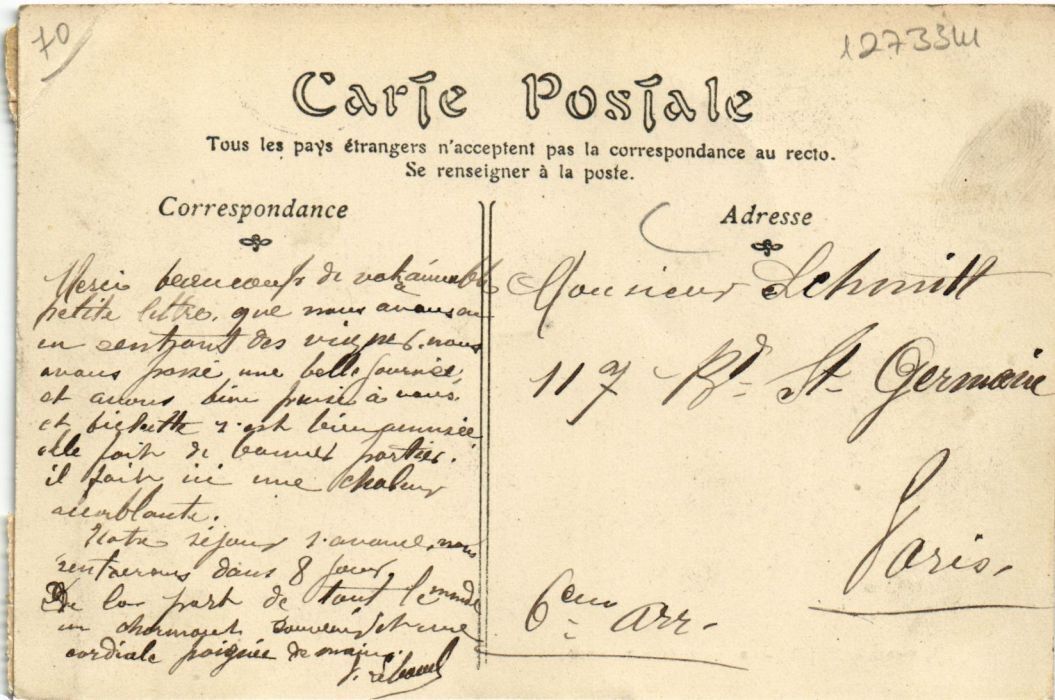 70
127334
Carte Postale
Tous les pays étrangers n'acceptent pas la correspondance au recto.
Se renseigner à la poste.
Correspondance
Merci beaucoup de votre aimable
petite lettre, que nous avons eu
en rentrant des vignes. nous
avons passé une belle journée
et avons bien pensé à vous,
et s'est bien amusée
elle fait de bonnes parties.
il fait ici une chaleur
accablante.
Notre séjour s'avance, nous
rentrerons dans 8 jours
De la part de tout le monde
un charmant souvenir et une
cordiale poignée de mains.
Adresse
Monsieur Schmitt
117 Bd St Germain
Paris.
6eme Arr.